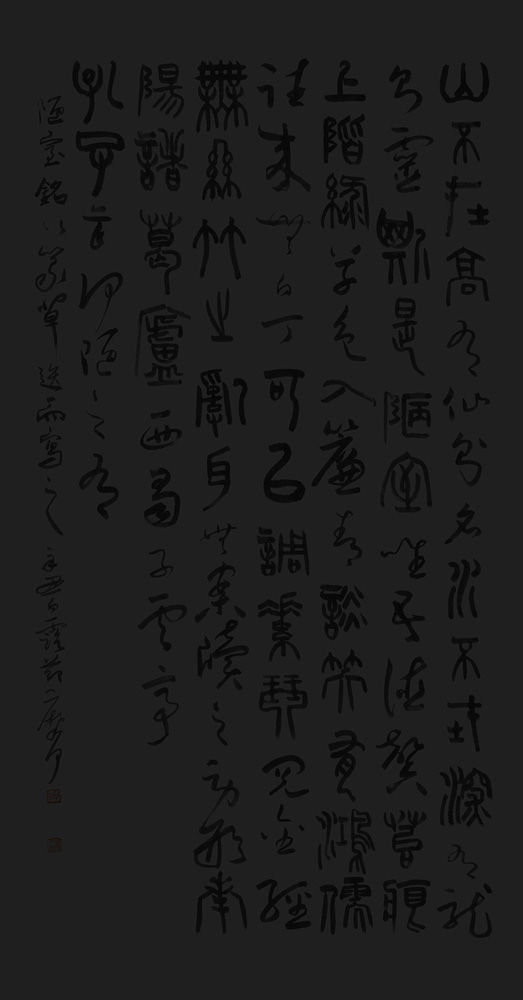 山不在高有仙則名水不在深有龍
則靈斯是陋室唯吾德馨苔痕
上階綠草色入簾青談笑有鴻儒
往來無白丁可以調素琴閱金經
無絲竹之亂耳無案牘之勞形南
陽諸葛廬西蜀子雲亭
孔子言何陋之有
陋室銘以篆草而寫之辛丑白露節